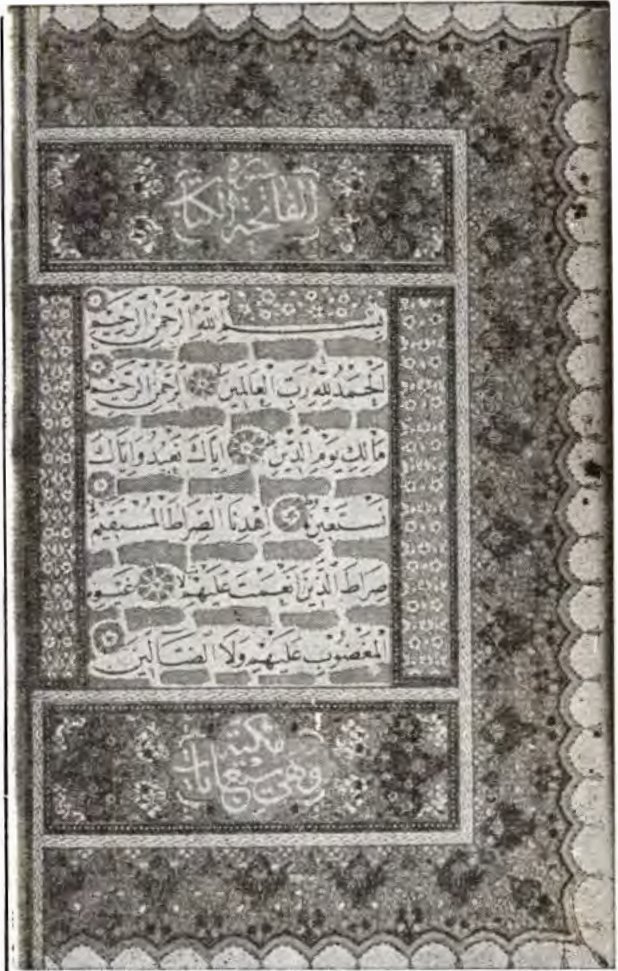 سورة
الفاتحة الكتاب
بسم الله الرحمن الرحيم
الحمد لله رب العالمين الرحمن الرحيم
مالك يوم الدين اياك نعبد واياك
نستعين اهدنا الصراط المستقيم
صراط الذين انعمت عليهم غير
المغضوب عليهم ولا الضالين
مكية
وهي سبع ايات